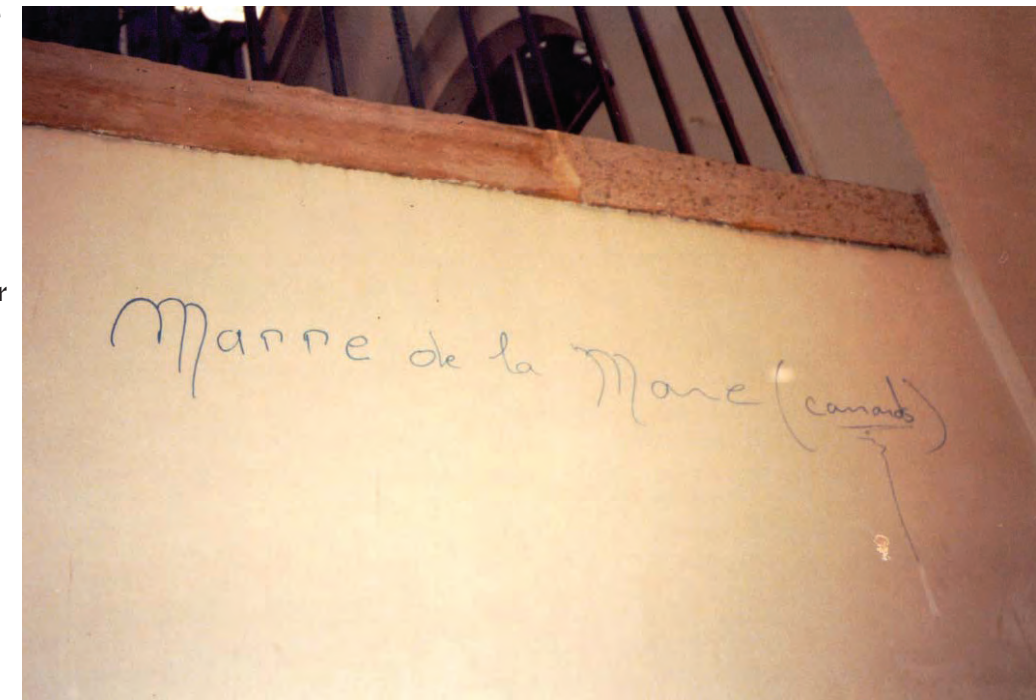 Marre de la Mare (canards)